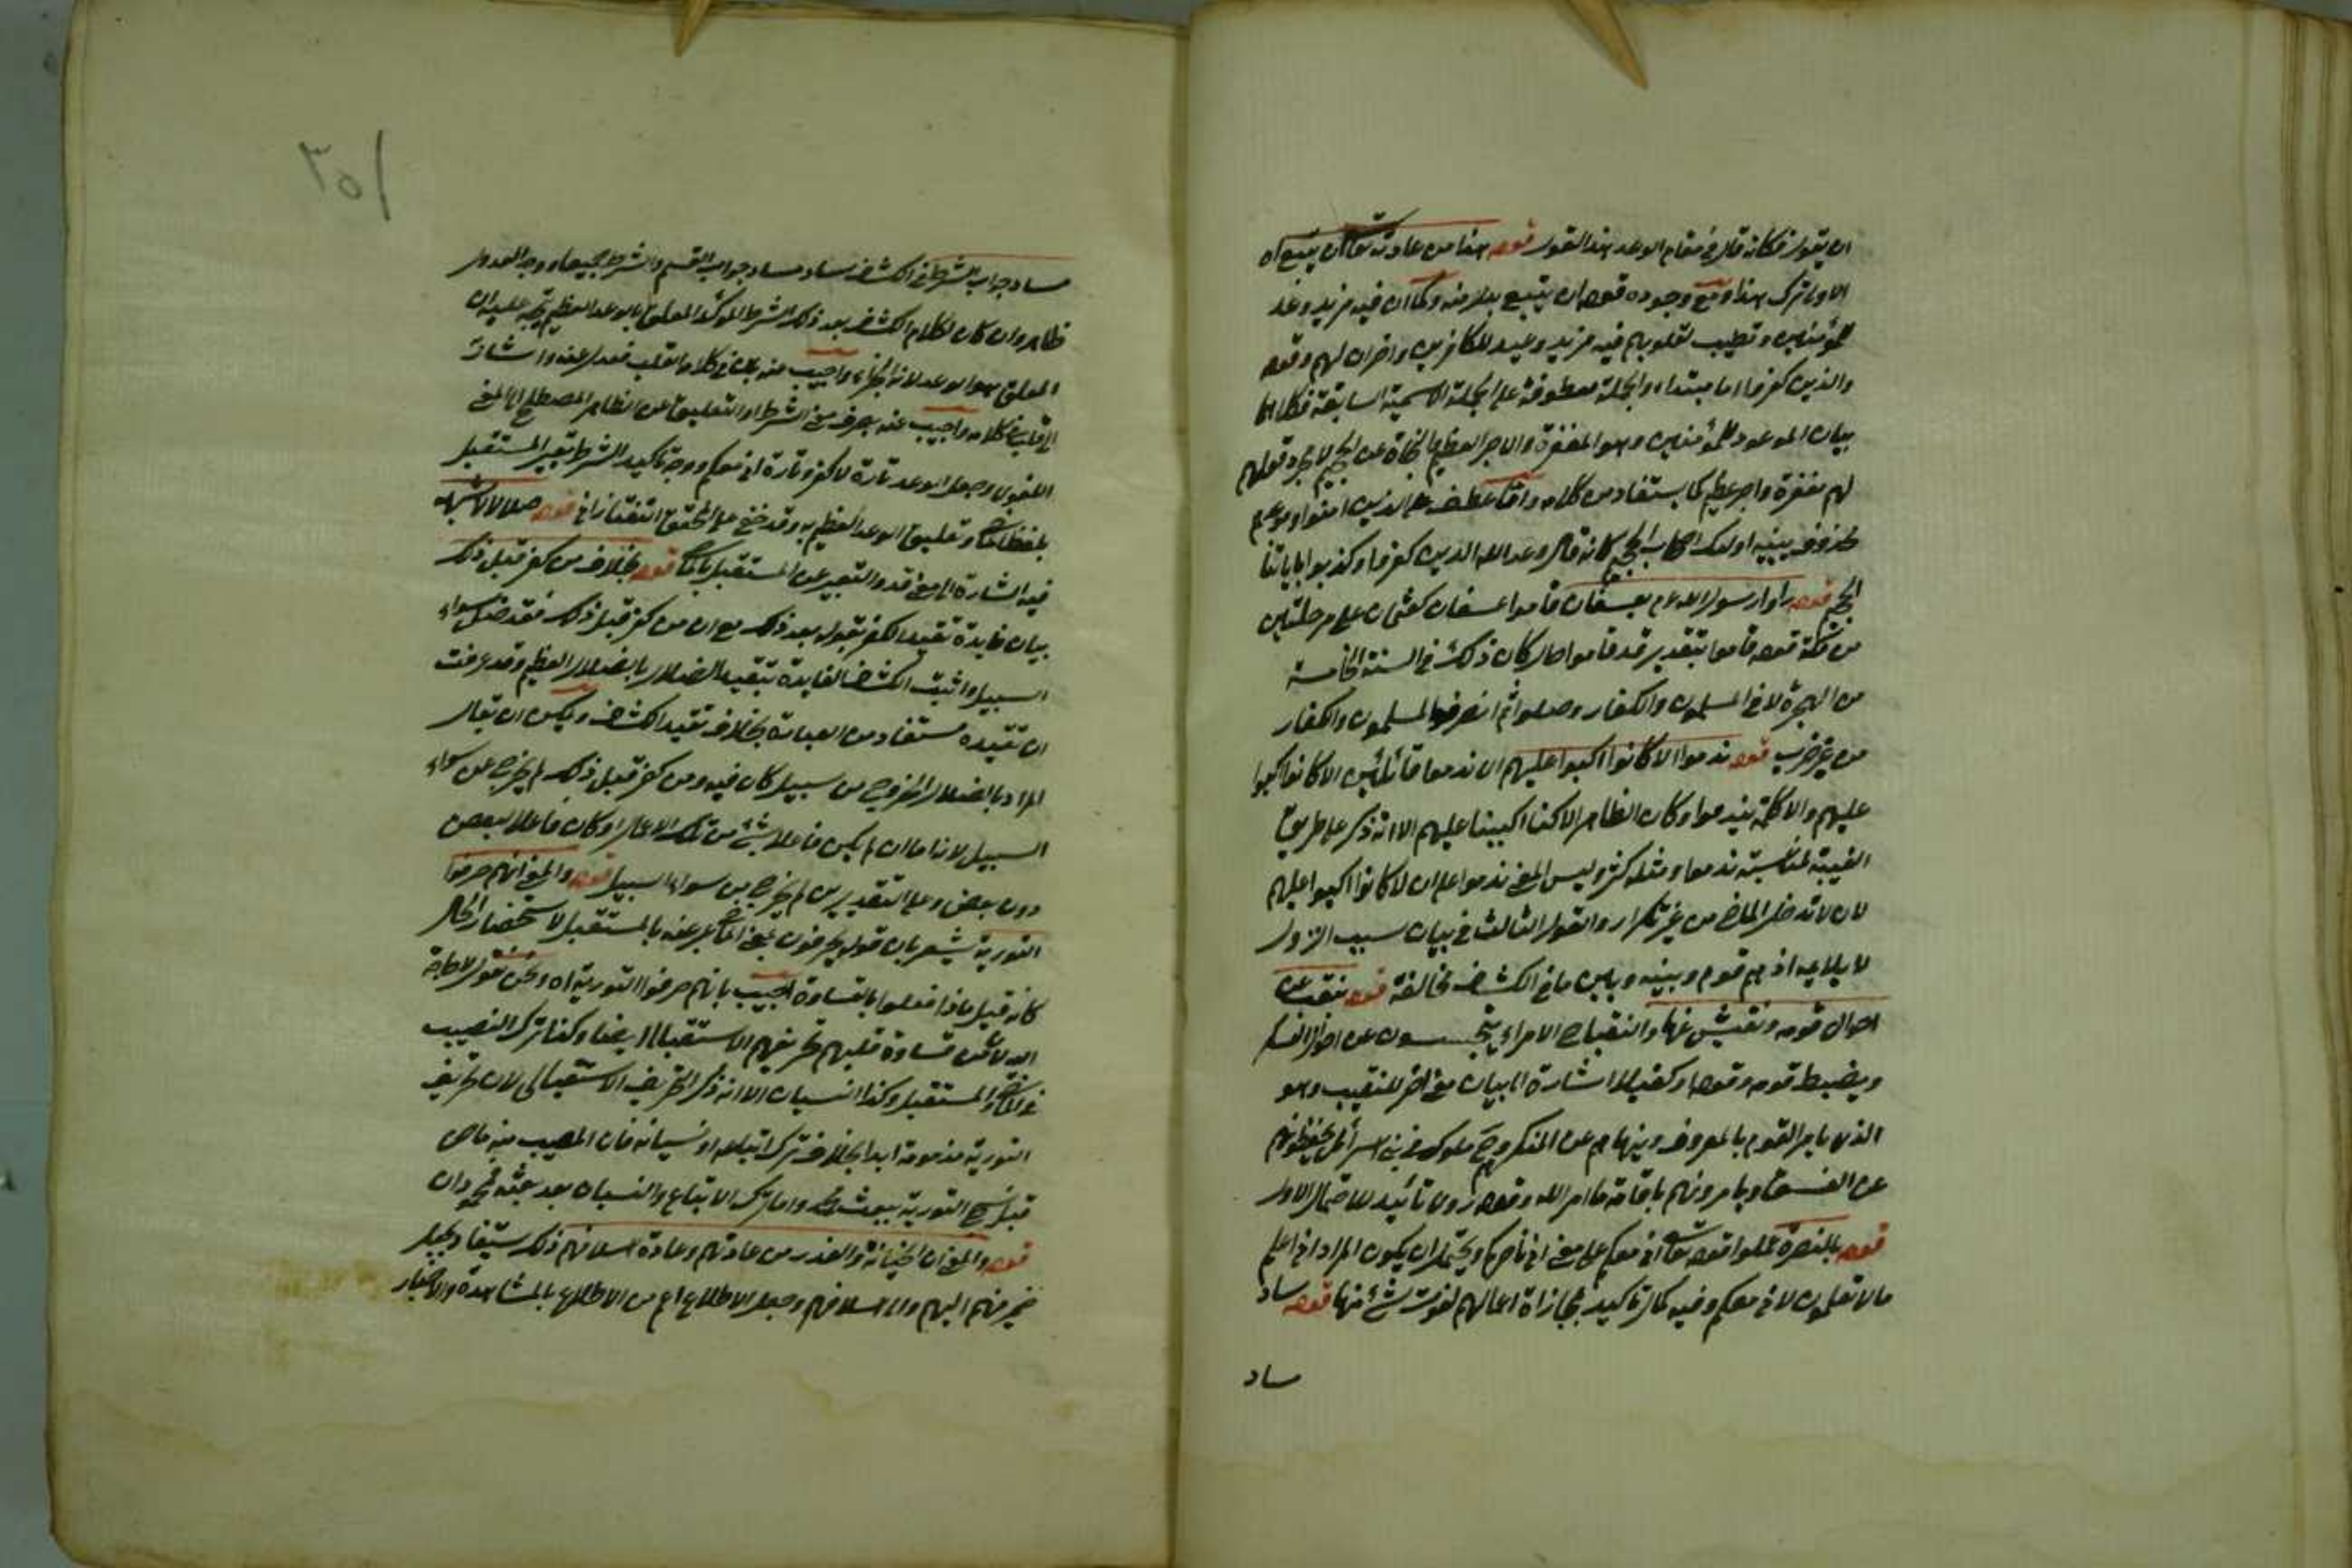 ان يقول فكانه قال في مقام الوعد هذا القول قوله هذا من عادته تعالى ان يتبع اه
الاولى ترك هذا ومع وجوده قوله ان يتبع بدلا منه وكما ان فيه مزيد وعد
للمؤمنين وتطييب لقلوبهم فيه مزيد وعيد للكافرين واخزان لهم وقوله
والذين كفروا اما مبتداء والجملة معطوفة على الجملة الاسمية السابقة فكلاهما
بيان الموعود للمؤمنين وهو المغفرة والاجر العظيم والنجاة عن الجحيم لا مجرد قولهم
لهم مغفرة واجر عظيم كما يستفاد من كلامه واما عطف على الذين امنوا وموعدهم
محذوف يبينه اولئك اصحاب الجحيم كانه قال وعد الله الذين كفروا وكذبوا باياتنا
الجحيم قوله راوا رسول الله عم بعسفان قاموا عسفان كعثمان على مرحلتين
من مكة قوله قاموا بتقدير قد قاموا حال كان ذلك في السنة الخامسة
من الهجرة لاقى المسلمون والكفار وصلوا ثم انصرف المسلمون والكفار
من غير حرب قوله ندموا الا كانوا اكبوا عليهم اي ندموا قائلين الا كانوا اكبوا
عليهم والا كلمة تنديم وكان الظاهر الا كنا اكببنا عليهم الا انه ذكر على طريق
الغيبة لمناسبة ندموا ومثله كثير وليس المعنى ندموا على ان لا كانوا اكبوا عليهم
لان لا تدخل الماضي من غير تكرار والقول الثالث في بيان سبب النزول
لا يلايمه اذ هم قوم وبينه وبين ما في الكشاف مخالفة قوله ينقب عن
احوال قومه ويفتش عنها والنقباء الامراء يتجسسون عن احوال
ويضبط قومه وقوله وكفيلا اشارة الى بيان معنى اخر للنقيب وهو
الذي يامر القوم بالمعروف وينهاهم عن المنكر ملوك في بني اسرائيل يحفظونهم
عن الفسق ويامرونهم باقامة ما امر الله وقوله تأييد للاحتمال الاول
قوله بالنصرة عللوا قوله تعالى اني معكم على معنى اني ناصركم ويحتمل ان يكون المراد اني اعلم
ما لا تعلمون لاني معكم وفيه كمال تاكيد لمجازاة اعمالهم لفوت شئ منها قوله ساد
ساد
٣٥١
مساد جواب الشرط في الكشاف ساد مساد جواب القسم والشرط جميعا ووجه العدول
ظاهر وان كان لكلام الكشاف بعد ذلك الشرط المؤكد المعلق بالوعد العظيم يتجه عليه ان
المعلق هو الوعد لانه الجزاء واجيب عنه بان في كلامه قلب فعدل عنه واشار
الى قلب في كلامه واجيب عنه بصرف معنى الشرط او التعليق عن الظاهر المصطلح الى المعنى
اللغوي وجعل الوعد تارة لاكفرن وتارة اني معكم ووجه تاكيد الشرط تعبير المستقبل
بلفظ الماضي وتعليق الوعد العظيم به وقد خفي على المحقق التفتازاني قوله ضلالا لا شبهة
فيه اشارة الى معنى قد والتعبير عن المستقبل بالماضي قوله بخلاف من كفر قبل ذلك
بيان فايدة تقييد الكفر بقوله بعد ذلك مع ان من كفر قبل ذلك فقد ضل سواء
السبيل واثبت الكشاف الفايدة بتقييد الضلال بالضلال العظيم وقد عرفت
ان تقييده مستفاد من العبارة بخلاف تقييد الكشاف ويمكن ان يقال
المراد بالضلال الخروج من سبيل كان فيه ومن كفر قبل ذلك لم يخرج عن سواء
السبيل لانه اما ان لم يكن فاعلا بشئ من تلك الاعمال او كان فاعلا لبعض
دون بعض وعلى التقديرين لم يخرج من سواء السبيل قوله والمعنى انهم حرفوا
التورية يشعر بان قوله يحرفون بمعنى الماضي عبر عنه بالمستقبل لاستحضار الحال
كانه قيل ماذا فعلوا بالقساوة اجيب بانهم حرفوا التورية اه ونحن نقول لا حاجة
اليه لان من قساوة قلبهم تحريفهم الاستقبالى ايضا وكذا ترك النصيب
في الماضي والمستقبل وكذا النسيان الا انه ذكر التحريف الاستقبالي لان تحريف
التورية مذمومة ابدا بخلاف ترك اتباعه او نسيانه فان المعيب منه ما هو
قبل نسخ التورية ببعثة محمد واما ترك الاتباع والنسيان بعد بعثة محمد
قوله والمعنى ان الخيانة والغدر من عادتهم وعادة اسلافهم ذلك يستفاد بجعل
ضمير منهم اليهم والى اسلافهم وجعل الاطلاع اعم من الاطلاع بالمشاهدة والاخبار